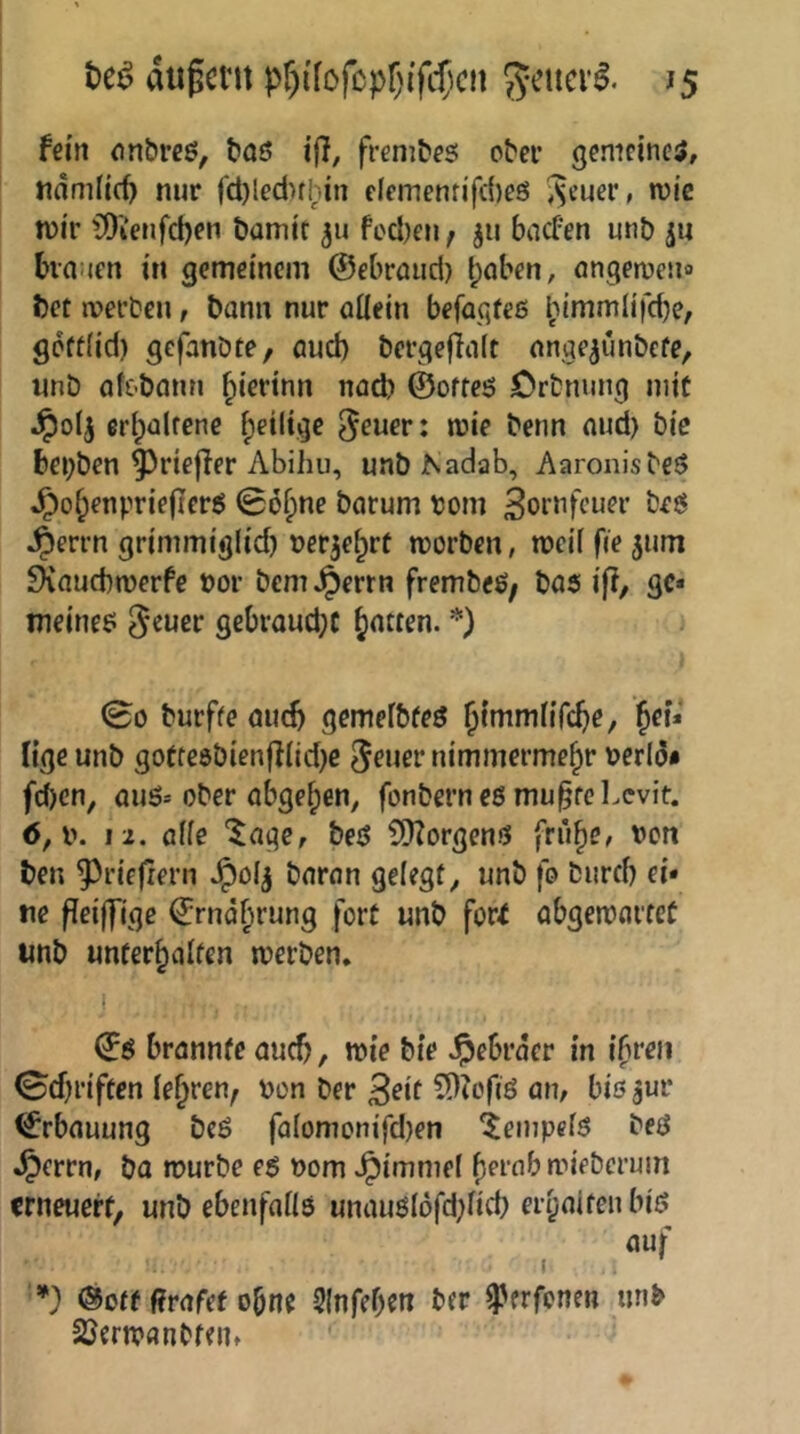 des äußern philosophischen Feuers. 15
kein andres, das ist, fremdes oder gemeines,
nämlich nur schlechthin elementisches Feuer, wie
wir Menschen damit zu kochen, zu backen und zu
brauen in gemeinem Gebrauch haben, angewen-
det werden, dann nur allein besagtes himmlische,
göttlich gesandte, auch dergestalt angezündete,
und alsdann hierinn nach Gottes Ordnung mit
Holz erhaltene heilige Feuer: wie denn auch die
beyden Priester Abihu, und Nadab, Aaronis des
Hohenpriesters Söhne darum vom Zornfeuer des
Herrn grimmiglich verzehrt worden, weil sie zum
Rauchwerke vor dem Herrn fremdes, das ist, ge-
meines Feuer gebraucht hatten. *)
So durfte auch gemeldtes himmlische, hei-
lige und gottesdienstliche Feuer nimmermehr verlö-
schen, aus- oder abgehen, sondern es mußte Levit.
6, v. 12. alle Tage, des Morgens frühe, von
den Priestern Holz daran gelegt, und so durch ei-
ne fleissige Ernährung fort und fort abgewartet
und unterhalten werden.
Es brannte auch, wie die Hebräer in ihren
Schriften lehren, von der Zeit Mosis an, bis zur
Erbauung des salomonischen Tempels des
Herrn, da wurde es vom Himmel herab wiederum
erneuert, und ebenfalls unauslöschlich erhalten bis
auf
*) Gott strafet ohne Ansehen der Personen und
Verwandten.